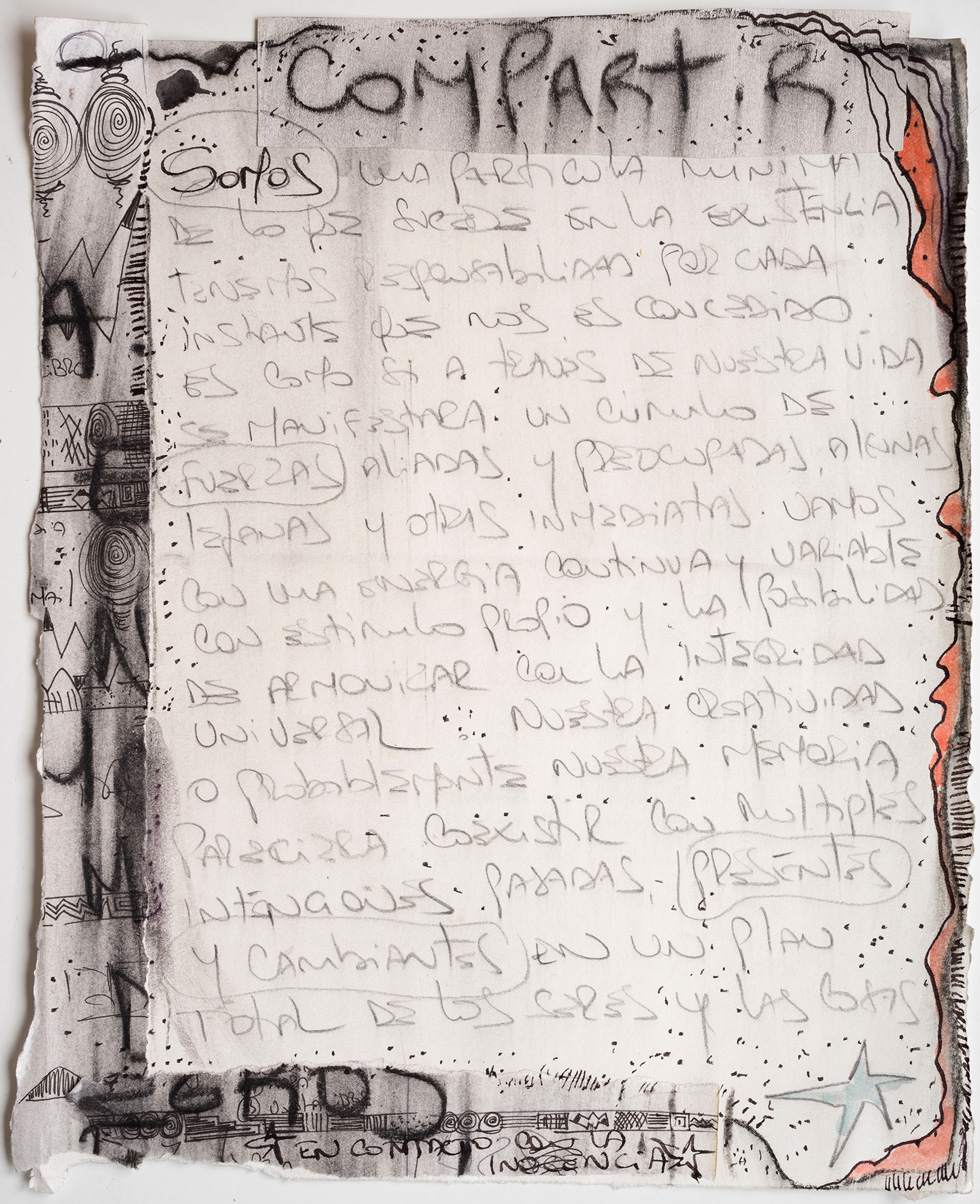 COMPARTIR
Somos una particula minima
de lo que sucede en la existencia
tenemos responsabilidad por cada
instante que nos es concedido.
es como si a traves de nuestra vida
se manifestara un cumulo de
fuerzas aliadas y preocupadas, algunas
lejanas y otras inmediatas. vamos
con una energia continua y variable
con estimulo propio y la posibilidad
de armonizar con la integridad
universal nuestra creatividad
o probablemente nuestra memoria
pareciera coexistir con multiples
intenciones pasadas, presentes
y cambiantes en un plan
total de los seres y las cosas
EN CONTACTO CON LA
INOCENCIA